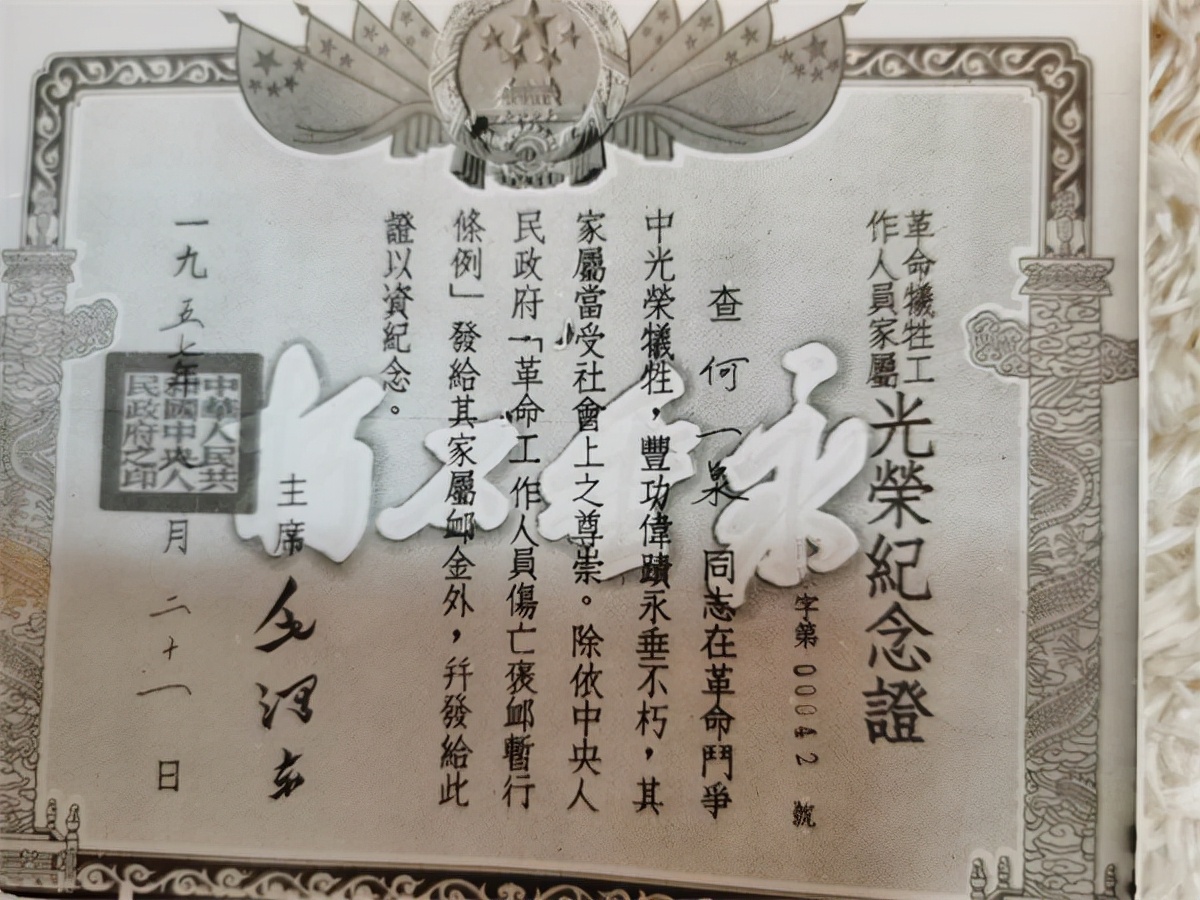 革命犧牲工
作人員家屬
光榮紀念證
字第00042號
查何一泉同志在革命鬥爭
中光榮犧牲，豐功偉蹟永垂不朽，其
家屬當受社會上之尊崇。除依中央人
民政府「革命工作人員傷亡褒卹暫行
條例」發給其家屬卹金外，幷發給此
證以資紀念。
永垂不朽
主席毛澤東
一九五七年 月二十一日
中華人民共
和國中央人
民政府之印